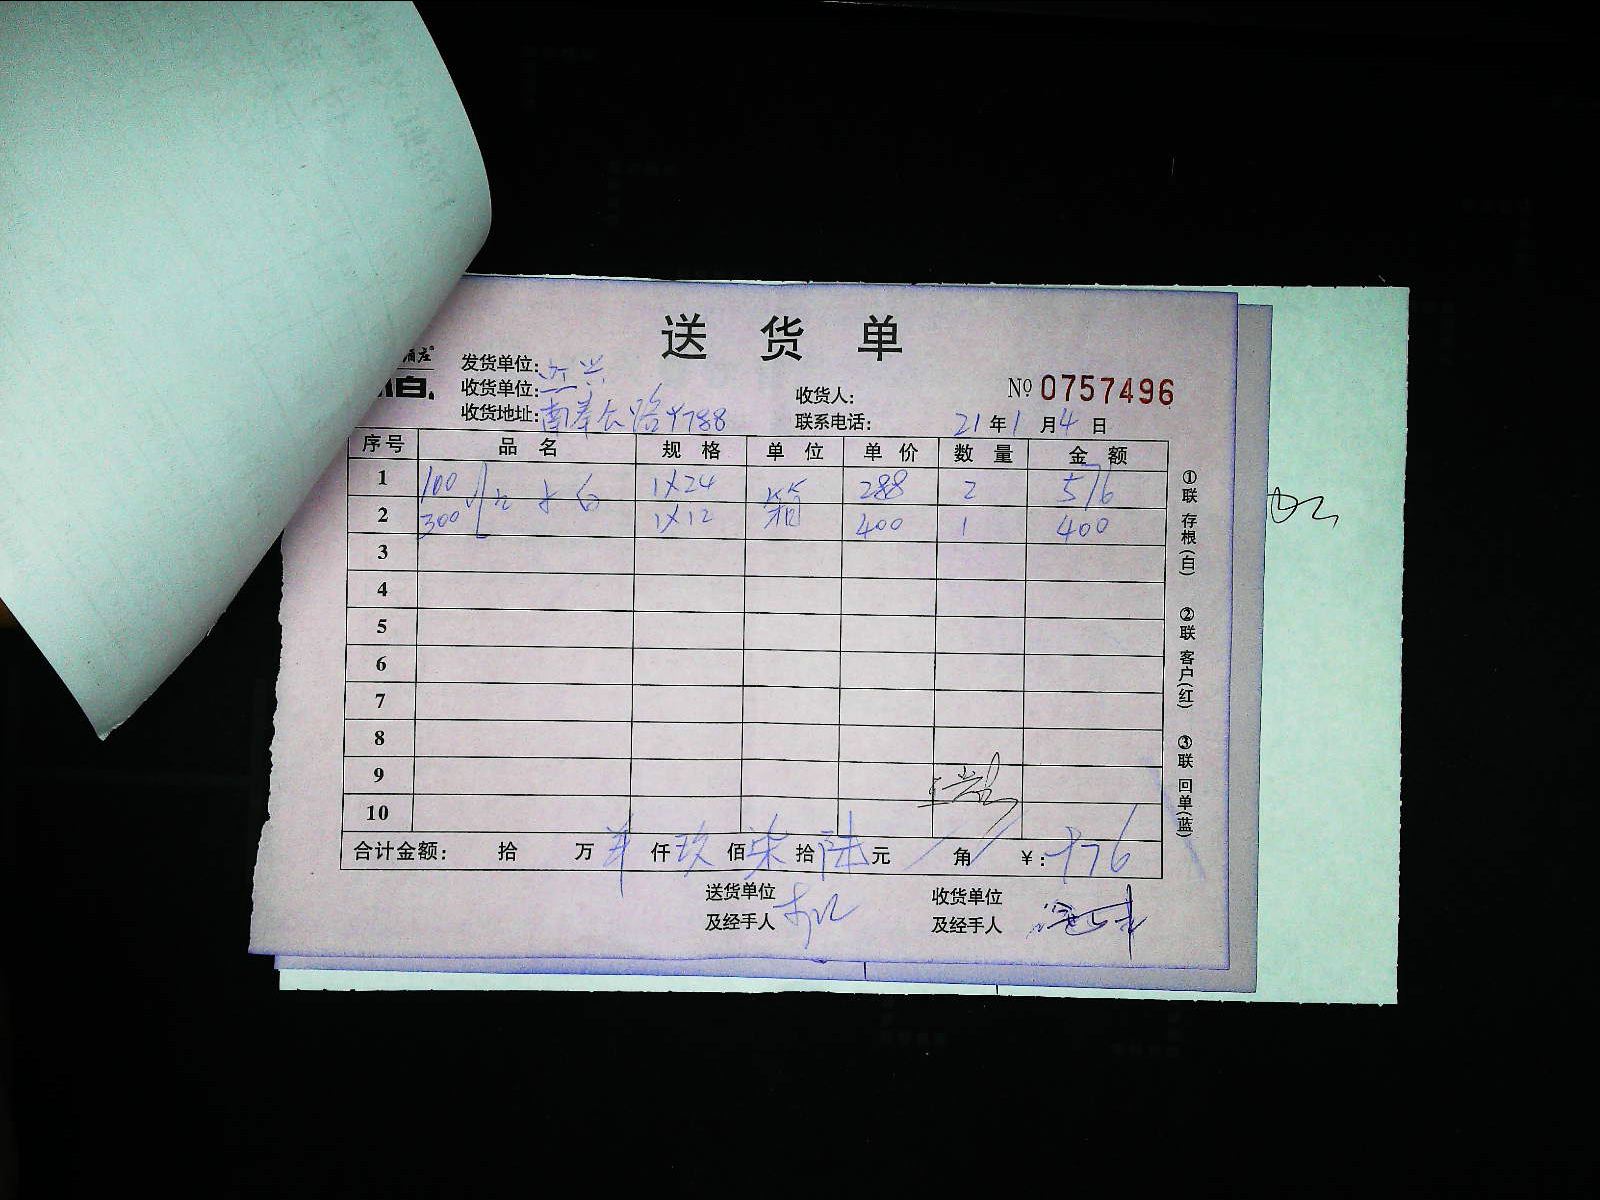 送 货 单
发货单位:
收货单位:
收货地址: 南奉公路9788
收货人:
联系电话:
No 0757496
21 年 1 月 4 日
序号 品 名 规 格 单 位 单 价 数 量 金 额
1 100 1X24 288 2 576
2 300 1X12 箱 400 1 400
3
4
5
6
7
8
9
10
合计金额: 拾 万 仟 玖 佰 柒 拾 陆 元 角 ¥: 976
送货单位
及经手人
收货单位
及经手人
①联 存根(白) ②联 客户(红) ③联 回单(蓝)